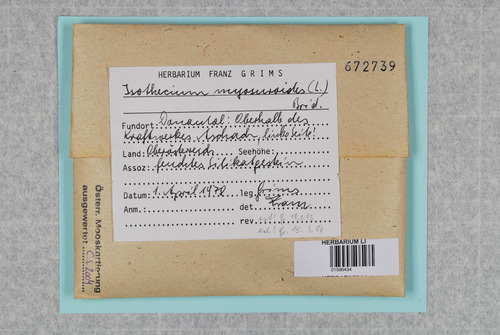 HERBARIUM FRANZ GRIMS
672739
Isothecium myosuroides (L.)
Brid.
Fundort: Donautal: Oberhalb des
Kraftwerkes Aschach, linksseitig!
Land: Oberösterreich Seehöhe:
Assoz: feuchtes Silikatgestein
Datum: 1. April 1970 leg. Grims
Anm.: det. Franz
rev.
Österr. Mooskartierung
ausgewertet
HERBARIUM LI
01590434